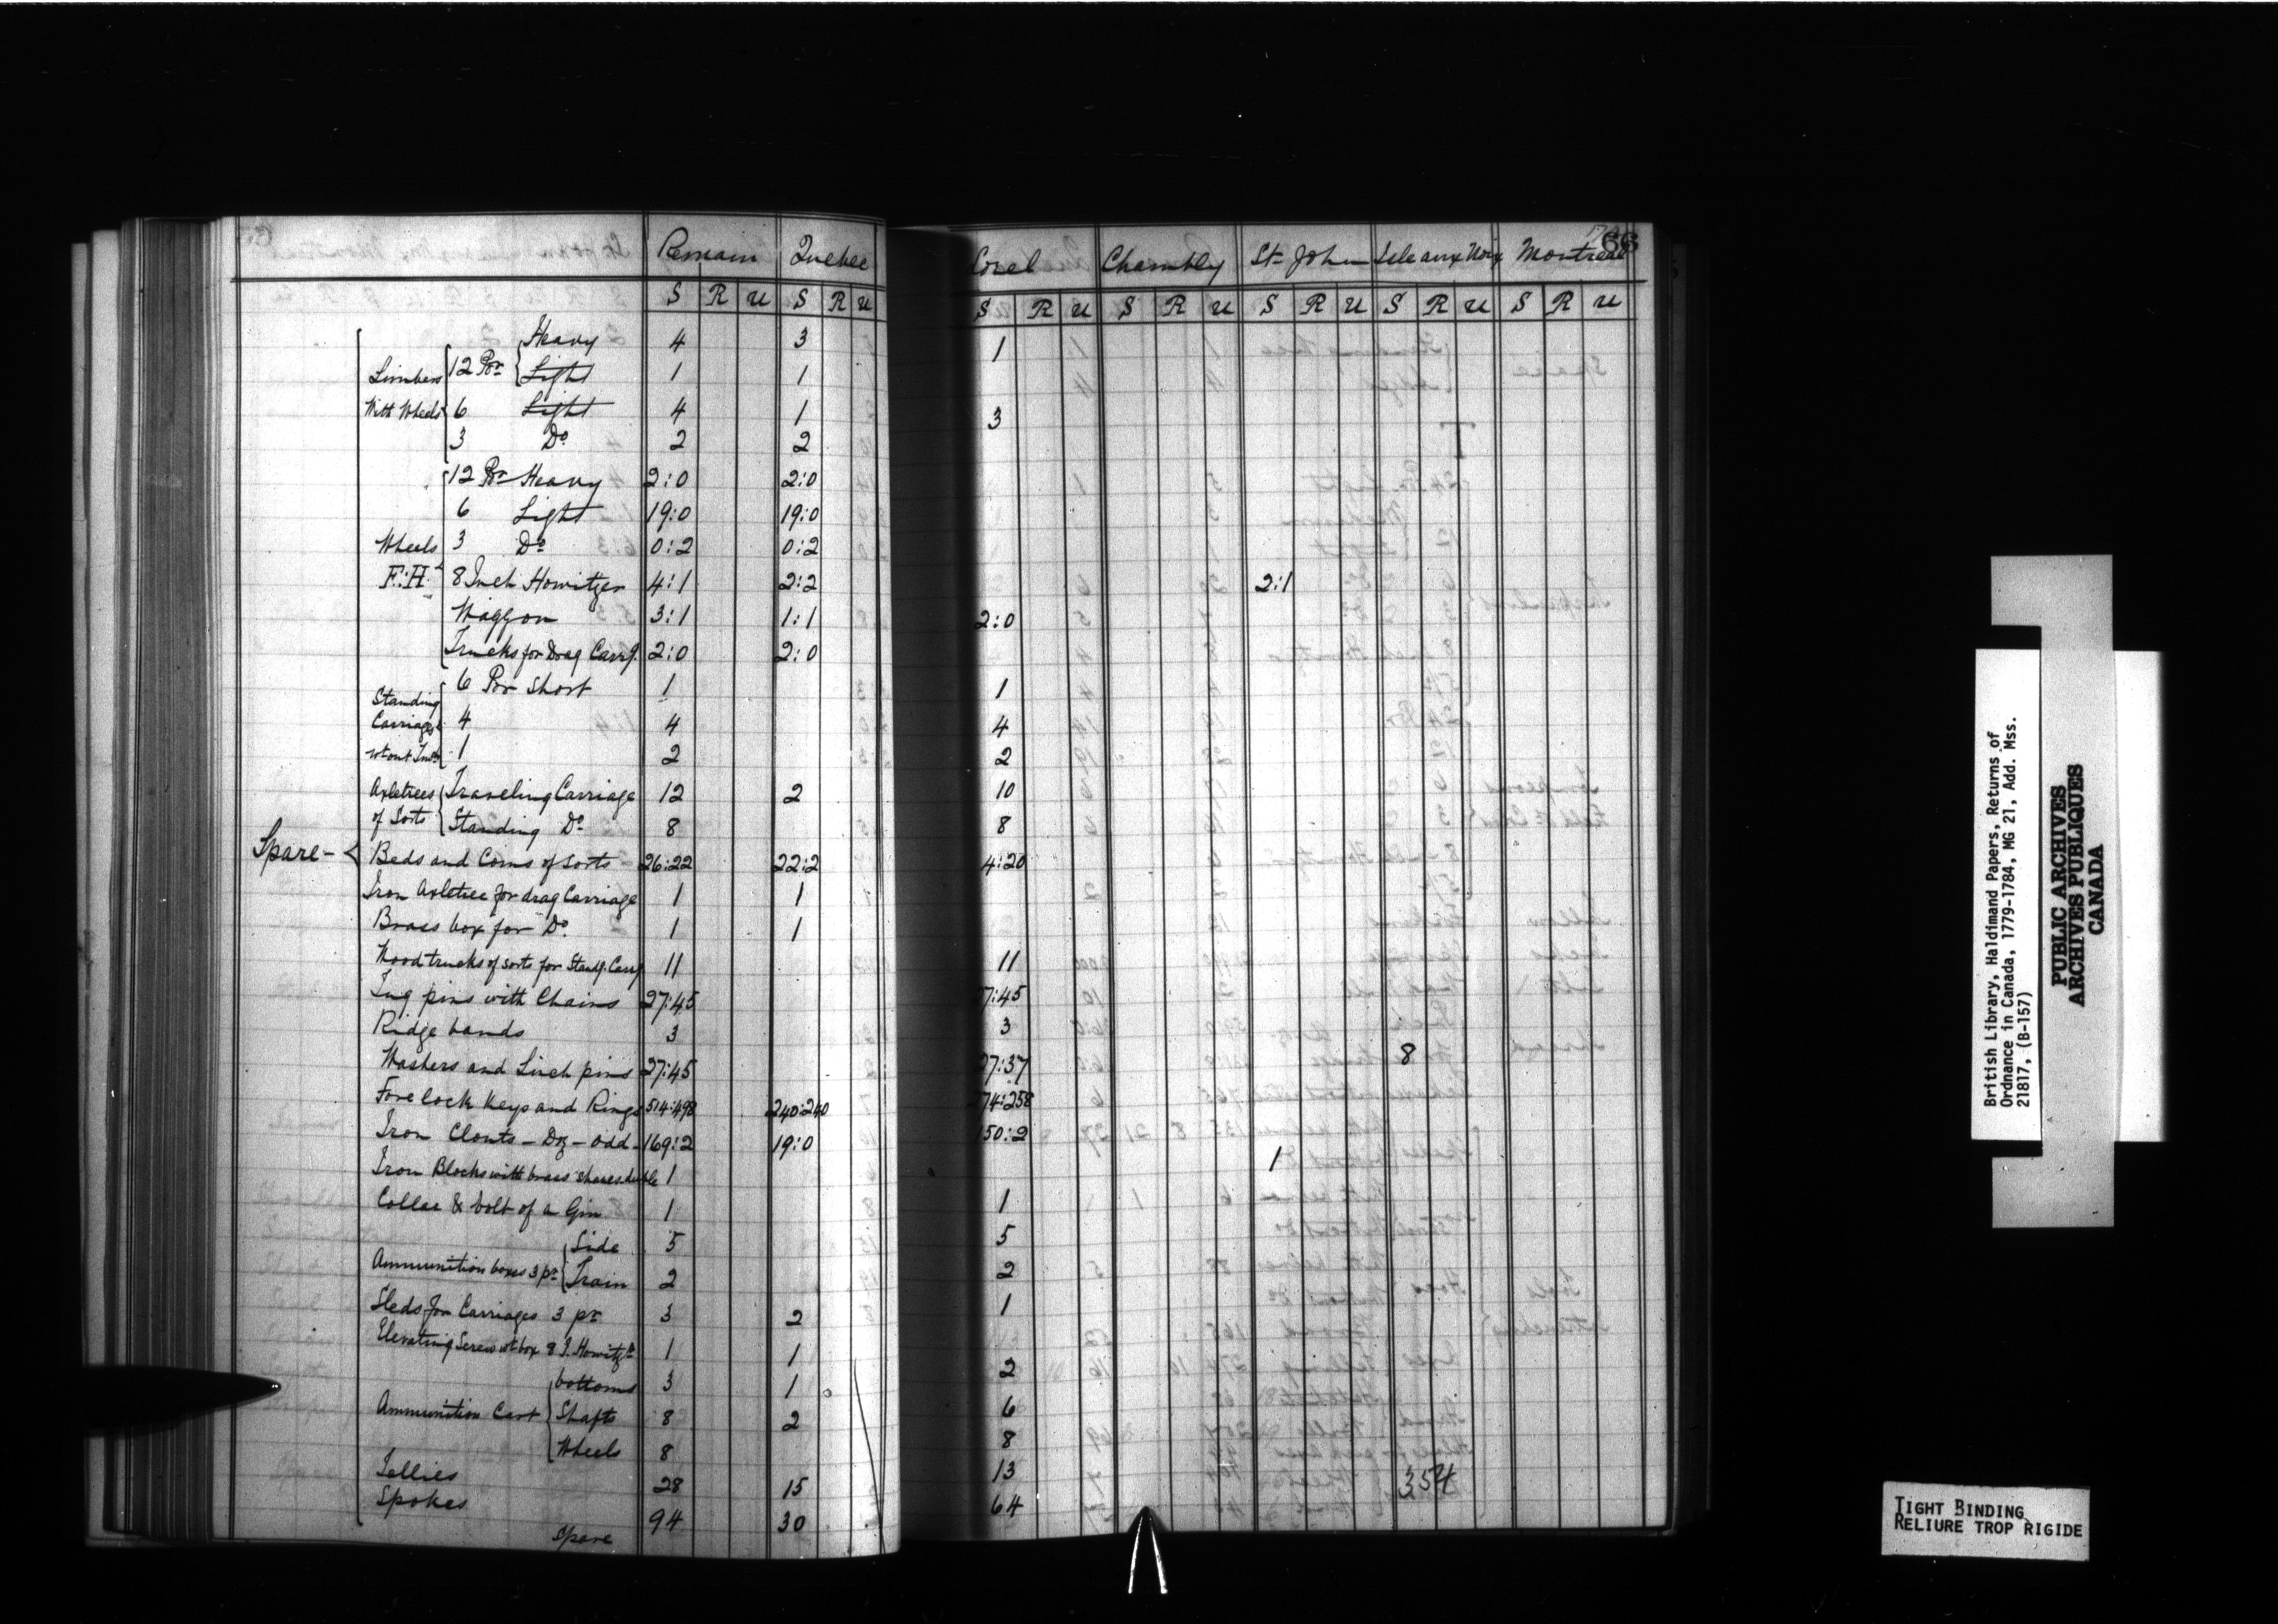 Remain Quebec Sorel Chambly St John Isle aux Noix Montreal 66
S R U S R U S R U S R U S R U S R U S R U
Heavy 4 3 1
Limbers 12 Pr Light 1 1
With Wheels 6 Light 4 1 3
3 Do 2 2
12 Pr Heavy 2:0 2:0
6 Light 19:0 19:0
Wheels 3 Do 0:2 0:2
F:H 8 Inch Howitzer 4:1 2:2 2:1
Waggon 3:1 1:1 2:0
Trucks for Drag Carrg. 2:0 2:0
6 Por Short 1 1
Standing
Carriages 4 4 4
wtout 1 2 2
Axletrees Traveling Carriage 12 2 10
of Sorts Standing Do 8 8
Spare - Beds and Coins of sorts 26:22 22:2 4:20
Iron Axletree for drag Carriage 1 1
Brass box for Do. 1 1
Wood trucks of sorts for Standg. Carrg 11 11
Lug pins with Chains 27:45 27:45
Ridge bands 3 3
Washers and Linch pins 27:45 27:37 8
Fore lock Keys and Rings 514:498 240:240 274:258
Iron Clouts - Doz - odd - 169:2 19:0 150:2
Iron Blocks with brass shives double 1 1
Collar & bolt of a Gin 1 1
Side 5 5
Ammunition boxes 3 pr Train 2 2
Sleds for Carriages 3 pr 3 2 1
Elevating Screw wt box 8 I. Howitzr 1 1
bottoms 3 1 2
Ammunition Cart Shafts 8 2 6
Wheels 8 8
Fellies 28 15 13 354
Spokes 94 30 64
Spare
British Library, Haldimand Papers, Returns of
Ordnance in Canada, 1779-1784, MG 21, Add. Mss.
21817, (B-157)
PUBLIC ARCHIVES
ARCHIVES PUBLIQUES
CANADA
TIGHT BINDING
RELIURE TROP RIGIDE